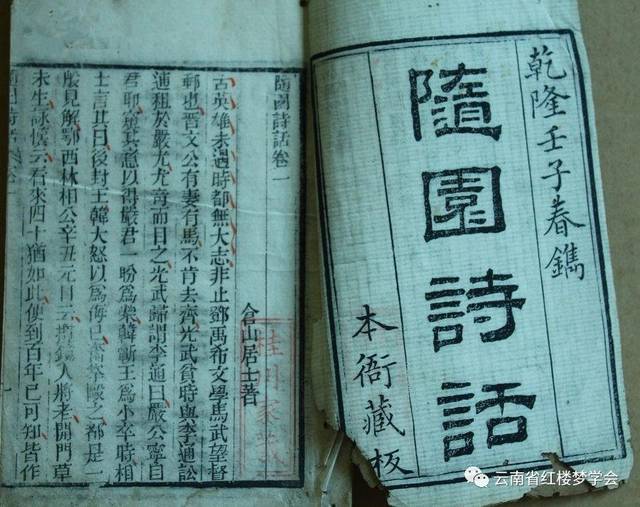 乾隆壬子春鐫
隨園詩話
本衙藏板
隨園詩話卷一
倉山居士著
古英雄未遇時都無大志非止鄧禹希文學馬武望督
郵也晉文公有妻有馬不肯去齊光武貧時與李通訟
逋租於嚴尤尤奇而目之光武歸謂李通曰嚴公寧目
君耶窺其意以得嚴君一盼為榮韓蘄王為小卒時相
士言其日後封王韓大怒以為侮己奮拳毆之都是一
般見解鄂西林相公辛丑元日云攬鏡人將老開門草
未生詠懷云看來四十猶如此便到百年已可知皆作
云南省红楼梦学会